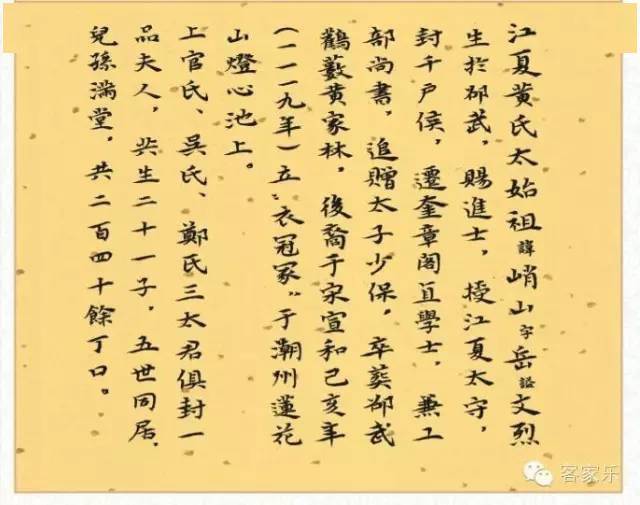 江夏黄氏太始祖諱峭山字岳謚文烈
生於邵武，賜進士，授江夏太守，
封千戶侯，遷奎章阁直學士，兼工
部尚書，追贈太子少保，卒葬邵武
鸛藪黄家林，後裔于宋宣和己亥年
（一一一九年）立“衣冠冢”于潮州蓮花
山燈心池上。
上官氏、吴氏、鄭氏三太君俱封一
品夫人，共生二十一子，五世同居，
兒孫满堂，共二百四十餘丁口。
客家乐